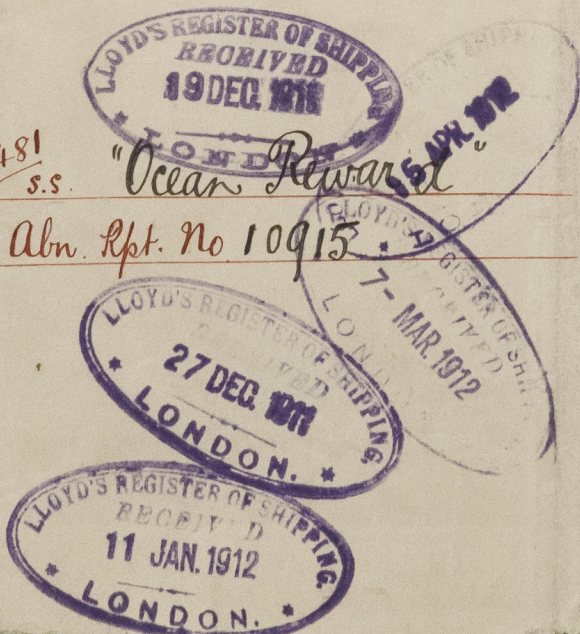 LLOYD'S REGISTER OF SHIPPING
RECEIVED
19 DEC. 1911
LONDON
OF SHIPPI
15 APR. 1912
481
s.s. "Ocean Reward"
Abn. Rpt. No 10915
LLOYD'S REGISTER OF SHIP
RECEIVED
7 - MAR. 1912
LOND
LLOYD'S REGISTER OF SHIPPING.
IVED
27 DEC. 1911
LONDON.
LLOYD'S REGISTER OF SHIPPING.
RECEIV D
11 JAN. 1912
LONDON.